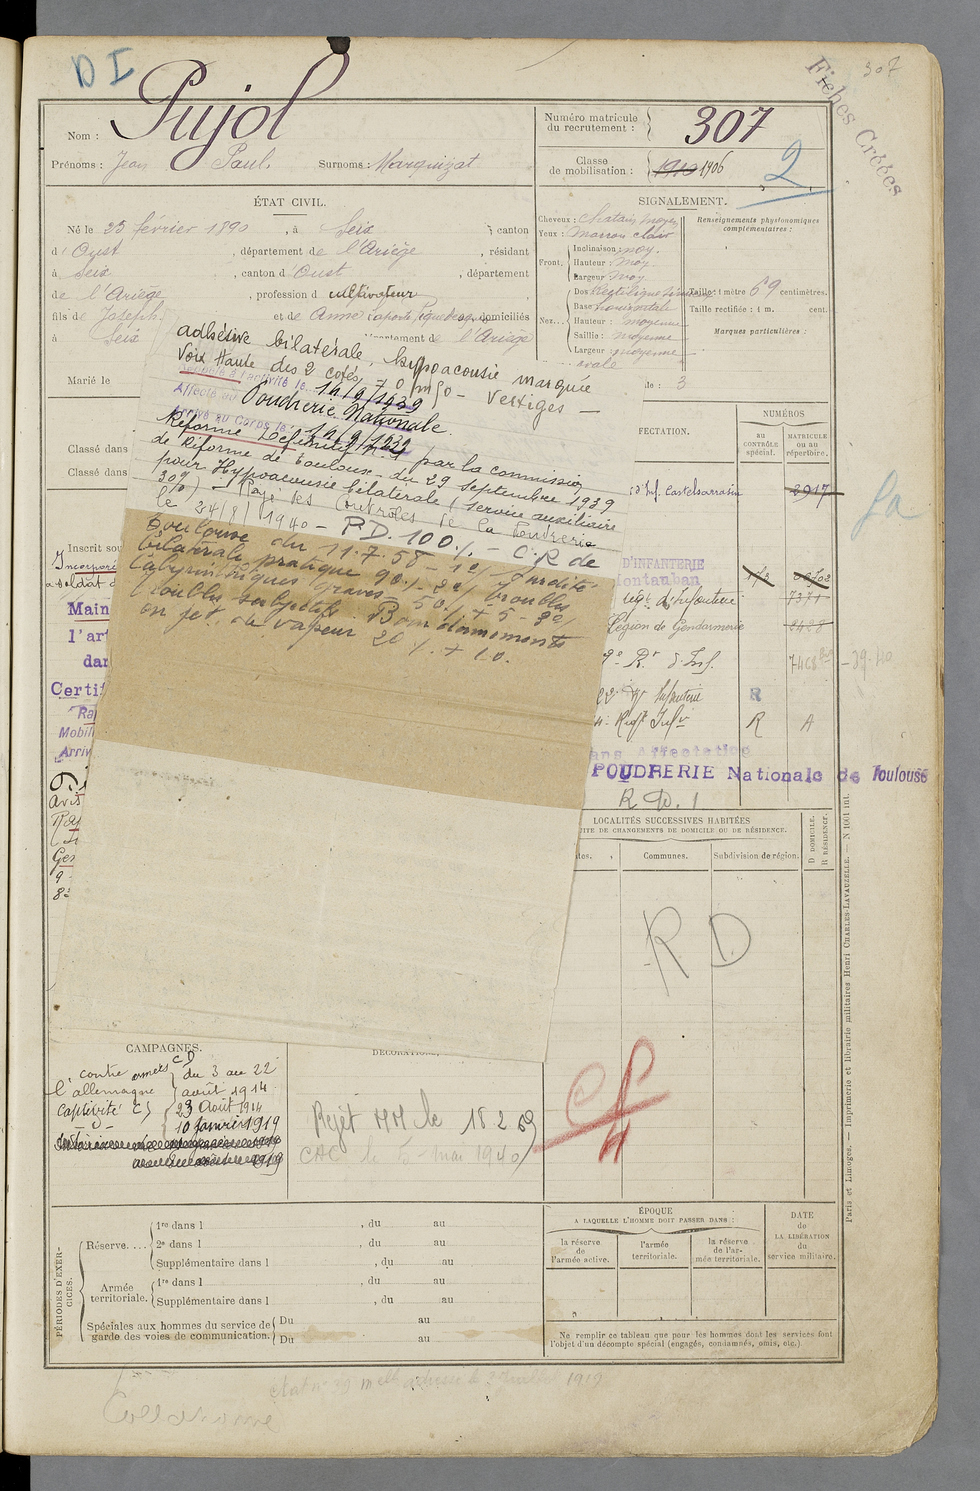 D I
307
Fiches Créées
Nom : Pujol
Prénoms : Jean Paul Surnoms : Marquizat
Numéro matricule du recrutement : 307
Classe de mobilisation : 1910 1906
2
ÉTAT CIVIL.
Né le 23 février 1890, à Seix, canton
d'Oust, département de l'Ariège, résidant
à Seix, canton d'Oust, département
de l'Ariège, profession d cultivateur
fils de Joseph et de Anne Laporte domiciliés
à Seix département de l'Ariège
Marié le
SIGNALEMENT.
Cheveux : Chatain moyen
Yeux : Marron clair
Front. Inclinaison : moy.
Hauteur : moy
Largeur moy
Nez... Dos Rectiligne
Base horizontale
Hauteur : moyenne
Saillie : moyenne
Largeur moyenne
ovale
Renseignements physionomiques complémentaires :
Taille : 1 mètre 69 centimètres.
Taille rectifiée : 1 m. cent.
Marques particulières :
de : 3
adhésive bilatérale, hypoacousie marquée
Voix Haute des 2 cotés, 70 m/50 - Vertiges -
Rappelé à l'activité le 14/9/1939
Affecté au Poudrerie Nationale.
Arrivé au Corps le 14/9/1939
Réformé Définitif par la commission
de Réforme de Toulouse du 29 septembre 1939
pour Hypoacousie bilatérale (service auxiliaire
30%) - Rayé des Controles de la Poudrerie
le 24/8/1940 - P.D. 100% - C.R de
Toulouse du 11.7.58 - 1°/ Surdité
bilatérale pratique 90% - 2°/ troubles
labyrinthiques graves - 50% + 5 - 3°/
troubles subjectifs Bourdonnements
en jet de vapeur 20% + 10.
Classé dans
Classé dans
Inscrit sou
Incorporé
soldat d
Main
l'arr
dar
Certif
Ra
Mobili
Arriv
Avis
Ge
FECTATION.
NUMÉROS
AU CONTRÔLE spécial.
MATRICULE OU AU répertoire.
d'Inf. Castelsarrasin 2917
D'INFANTERIE
ontauban
regt d'infanterie 7371
Légion de Gendarmerie 2428
9e Rt d'Inf. 7468
- 39-40
Infanterie R
R A
ans Affectation
POUDRERIE Nationale de Toulouse
R D. 1
LOCALITÉS SUCCESSIVES HABITÉES
ITE DE CHANGEMENTS DE DOMICILE OU DE RÉSIDENCE.
tes.
Communes.
Subdivision de région.
D DOMICILE. R RÉSIDENCE.
R D
CAMPAGNES.
contre CD
l'allemagne du 3 au 22
août 1914
Captivité C 23 Août 1914
10 janvier 1919
DÉCORATIONS,
Rejet MM le 18 2 59
CAC le 5 mai 1940
PÉRIODES D'EXERCICES.
Réserve.... 1re dans l , du au
2e dans l , du au
Supplémentaire dans l , du au
Armée territoriale. 1re dans l , du au
Supplémentaire dans l , du au
Spéciales aux hommes du service de garde des voies de communication. Du au
Du au
ÉPOQUE
A LAQUELLE L'HOMME DOIT PASSER DANS :
la réserve de l'armée active.
l'armée territoriale.
la réserve de l'armée territoriale.
DATE de LA LIBÉRATION du service militaire.
Ne remplir ce tableau que pour les hommes dont les services font
l'objet d'un décompte spécial (engagés, condamnés, omis, etc.)
Paris et Limoges. — Imprimerie et librairie militaires Henri CHARLES-LAVAUZELLE. — N 1001 int.